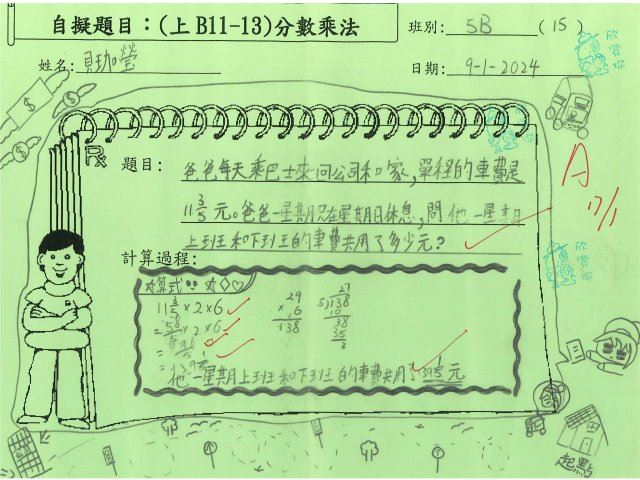 自擬題目：(上 B11-13)分數乘法
班別: 5B (15)
姓名:
日期: 9-1-2024
題目: 爸爸每天乘巴士來回公司和家,單程的車費是
11 3/5 元。爸爸一星期只在星期日休息,問他一星期
上班和下班的車費共用了多少元?
A
計算過程:
11 3/5 × 2 × 6
= 58/5 × 2 × 6
29
× 6
138
27
5)138
10
38
35
3
他一星期上班和下班的車費共用了 元
起點